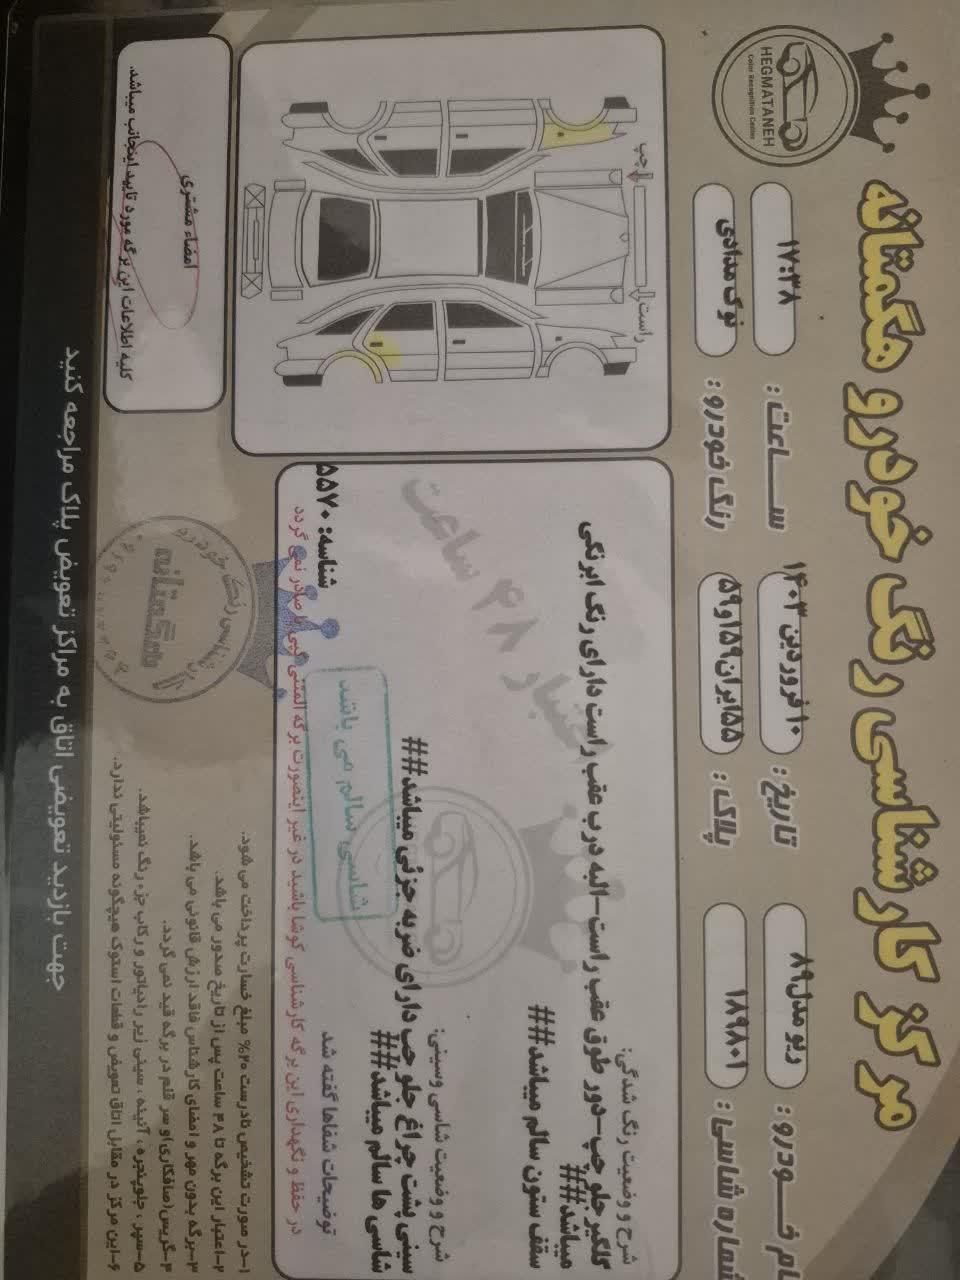 مرکز کارشناسی رنگ خودرو هگمتانه
HEGMATANEH
Color Recognition Center
نام خودرو: ریو مدل ۸۹
تاریخ: ۱۰ فروردین ۱۴۰۳
ساعت: ۱۷:۳۸
شماره شاسی: ۱۸۹۸۰۱
پلاک: ۵۵ایران۱۵۹و۵۹
رنگ خودرو: نوک مدادی
شرح و وضعیت رنگ شدگی:
گلگیر جلو چپ-دور طوق عقب راست-البه درب عقب راست دارای رنگ ابرنگی
میباشد##
سقف ستون سالم میباشد##
شرح و وضعیت شاسی وسینی:
سینی پشت چراغ جلو چپ دارای ضربه جزئی میباشد##
شاسی ها سالم میباشد##
اعتبار ۴۸ ساعت
شاسی سالم می باشد
توضیحات شفاها گفته شد
شناسه: ۵۵۷۰
در حفظ و نگهداری این برگه کارشناسی کوشا باشید در غیر اینصورت برگه المثنی کپی یا صادر نمی گردد
چپ
راست
امضاء مشتری
کلیه اطلاعات این برگه مورد تایید اینجانب میباشد.
۱-در صورت تشخیص نادرست ۲۰% مبلغ خسارت پرداخت می شود.
۲-اعتبار این برگه تا ۴۸ ساعت پس از تاریخ صدور می باشد.
۳-برگه بدون مهر و امضای کارشناس فاقد ارزش قانونی می باشد.
۴-گریس(صافکاری)و سر قلم در برگه قید نمی گردد.
۵-سپر، جلوپنجره، آئینه، سینی زیر رادیاتور و رکاب جزء رنگ نمیباشد.
۶-این مرکز در مقابل اتاق تعویض و قطعات استوک هیچگونه مسئولیتی ندارد.
کارشناسی رنگ خودرو
هگمتانه
جهت بازدید تعویضی اتاق به مراکز تعویض پلاک مراجعه کنید